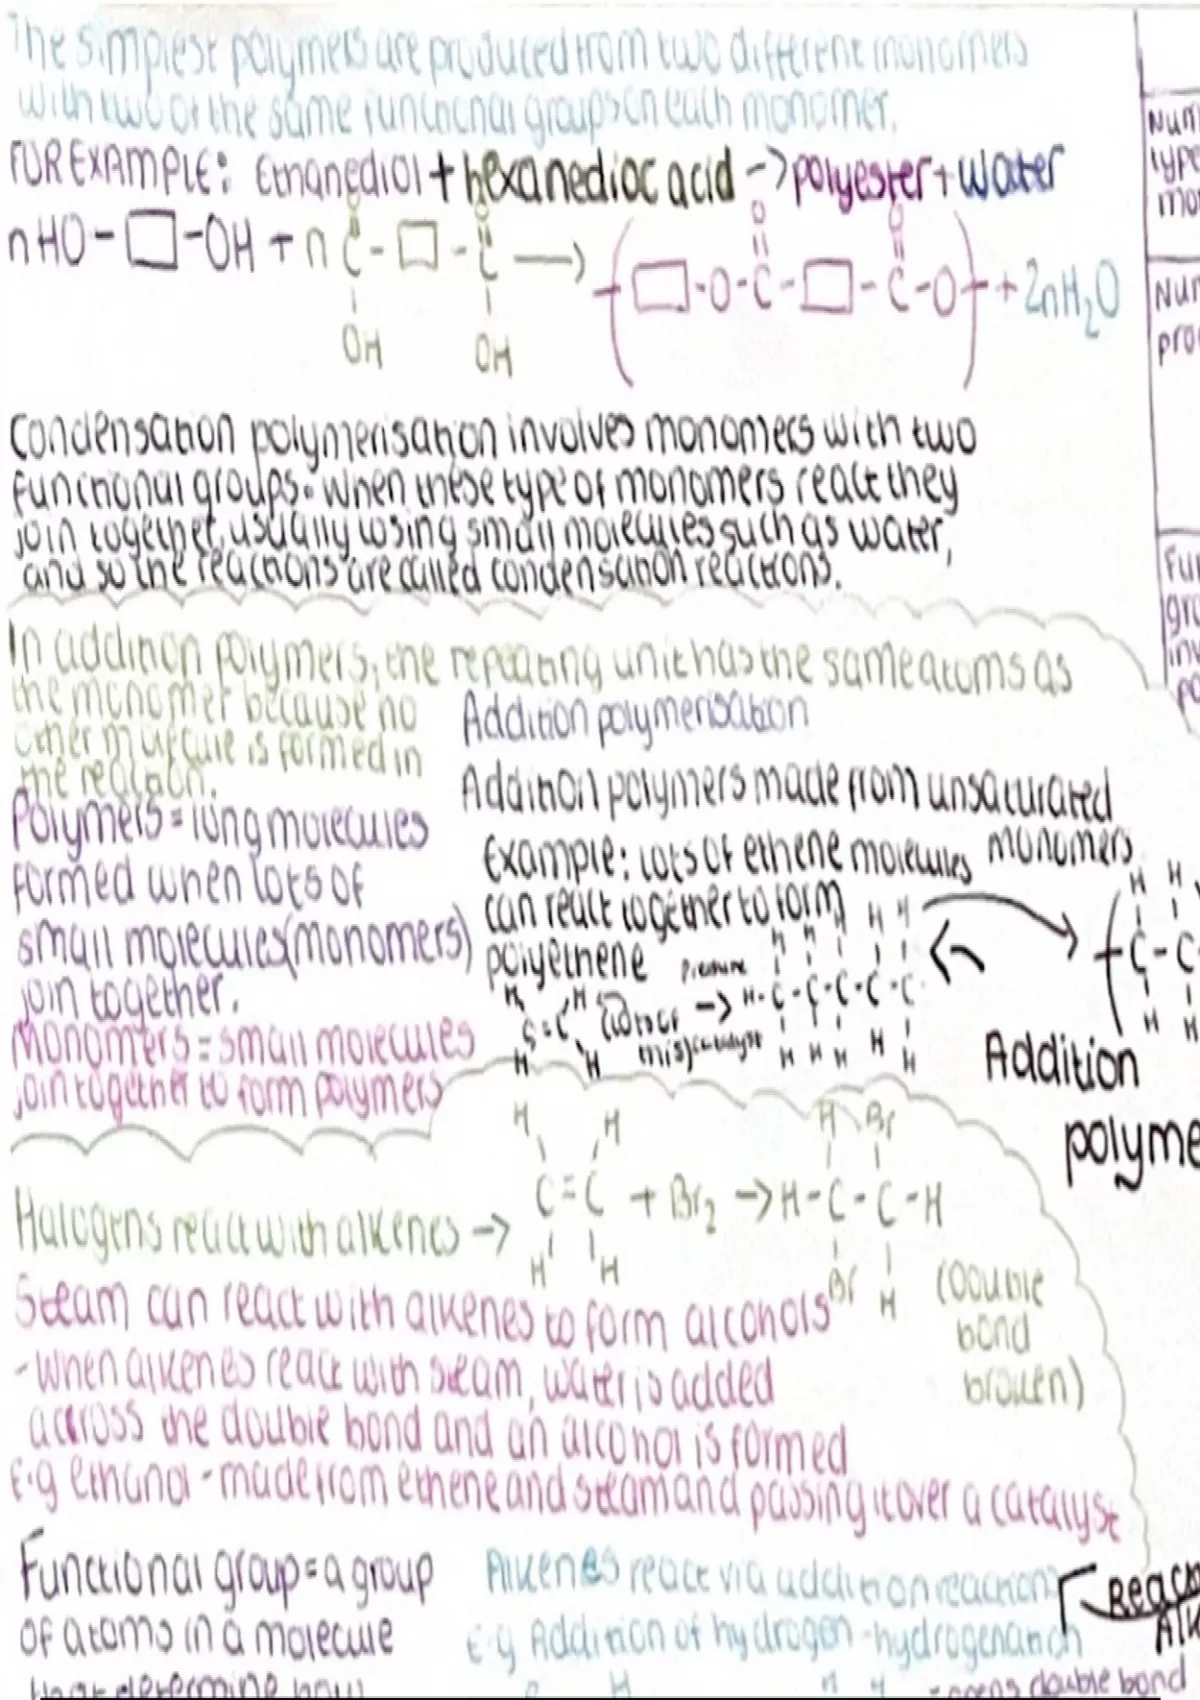 The simplest polymers are produced from two different monomers
with two of the same functional groups on each monomer.
FOR EXAMPLE: Ethanediol + hexanedioc acid -> polyester + water
nHO-□-OH + n C-□-C → (□-O-C-□-C-O) + 2nH₂O
O O O O
OH OH
Condensation polymerisation involves monomers with two
functional groups. When these type of monomers react they
join together, usually losing small molecules such as water,
and so the reactions are called condensation reactions.
In addition polymers, the repeating unit has the same atoms as
the monomer because no
other molecule is formed in
the reaction.
Polymers = long molecules
formed when lots of
small molecules (monomers)
join together.
Monomers = small molecules
join together to form polymers
Addition polymerisation
Addition polymers made from unsaturated
monomers
Example: Lots of ethene molecules
can react together to form
polyethene
pressure
catalyst
H-C-C-C-C-C
Addition
polyme
Halogens react with alkenes →
C=C + Br₂ → H-C-C-H
H H H Br
H H Br H
(Double
bond
broken)
Steam can react with alkenes to form alcohols
-When alkenes react with steam, water is added
across the double bond and an alcohol is formed
E.g ethanol - made from ethene and steam and passing it over a catalyst
Functional group = a group
of atoms in a molecule
that determine how
Alkenes react via addition reactions
E.g Addition of hydrogen - hydrogenation
double bond
Num
type
mo
Num
pro
Fun
gro
inv
po
Reac
Alk